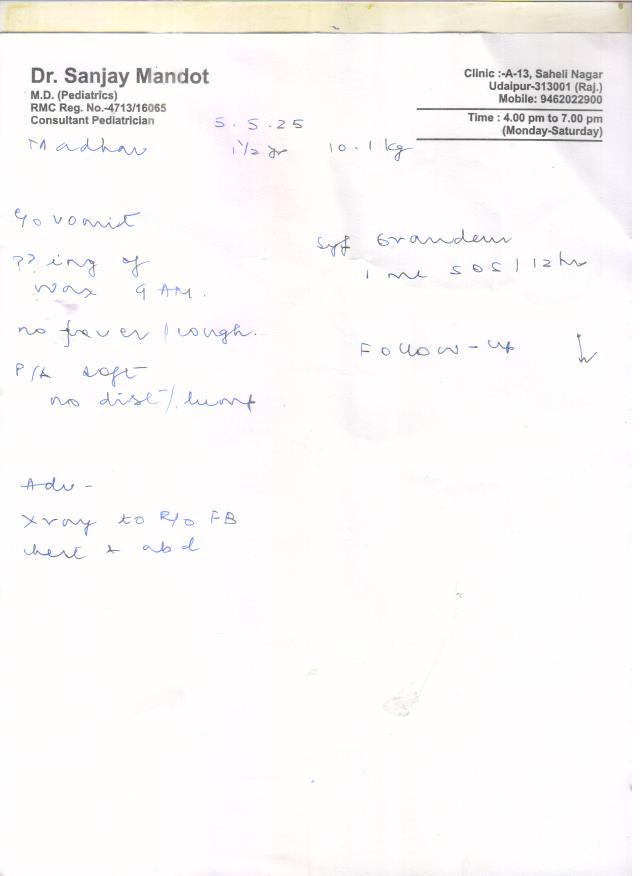 Dr. Sanjay Mandot
M.D. (Pediatrics)
RMC Reg. No.-4713/16065
Consultant Pediatrician
Clinic :-A-13, Saheli Nagar
Udaipur-313001 (Raj.)
Mobile: 9462022900
Time : 4.00 pm to 7.00 pm
(Monday-Saturday)
5.5.25
Madhav 1½ yr 10.1 kg
vomit
?? ing of
wax 9 AM.
no fever / cough.
P/A soft
no dist / lump
Adv -
Xray to R/o FB
chest & abd
Syp
1 ml SOS / 12 hr
Follow-up